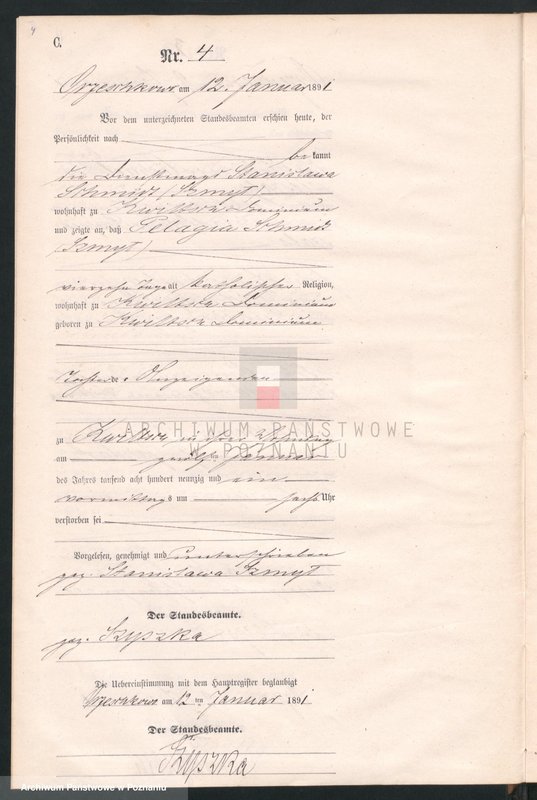 C.
Nr. 4
Orzeschkowo am 12. Januar 1891
Vor dem unterzeichneten Standesbeamten erschien heute, der
Persönlichkeit nach
be kannt
die Dienstmagd Stanislawa
Schmidt (Szmyt)
wohnhaft zu Kwiltsch Dominium
und zeigte an, daß Pelagia Schmidt
(Szmyt)
vierzehn Tage alt katholischer Religion,
wohnhaft zu Kwiltsch Dominium
geboren zu Kwiltsch Dominium
Tochter der Anzeigenden
zu Kwiltsch in ihrer Wohnung
am zwölf ten Januar
des Jahres tausend acht hundert neunzig und ein
vormittags um sechs Uhr
verstorben sei
Vorgelesen, genehmigt und unterschrieben
gez. Stanislawa Szmyt
Der Standesbeamte.
gez. Szyszka
Die Uebereinstimmung mit dem Hauptregister beglaubigt
Orzeschkowo am 12 ten Januar 1891
Der Standesbeamte.
Szyszka
ARCHIWUM PAŃSTWOWE
W POZNANIU
Archiwum Państwowe w Poznaniu